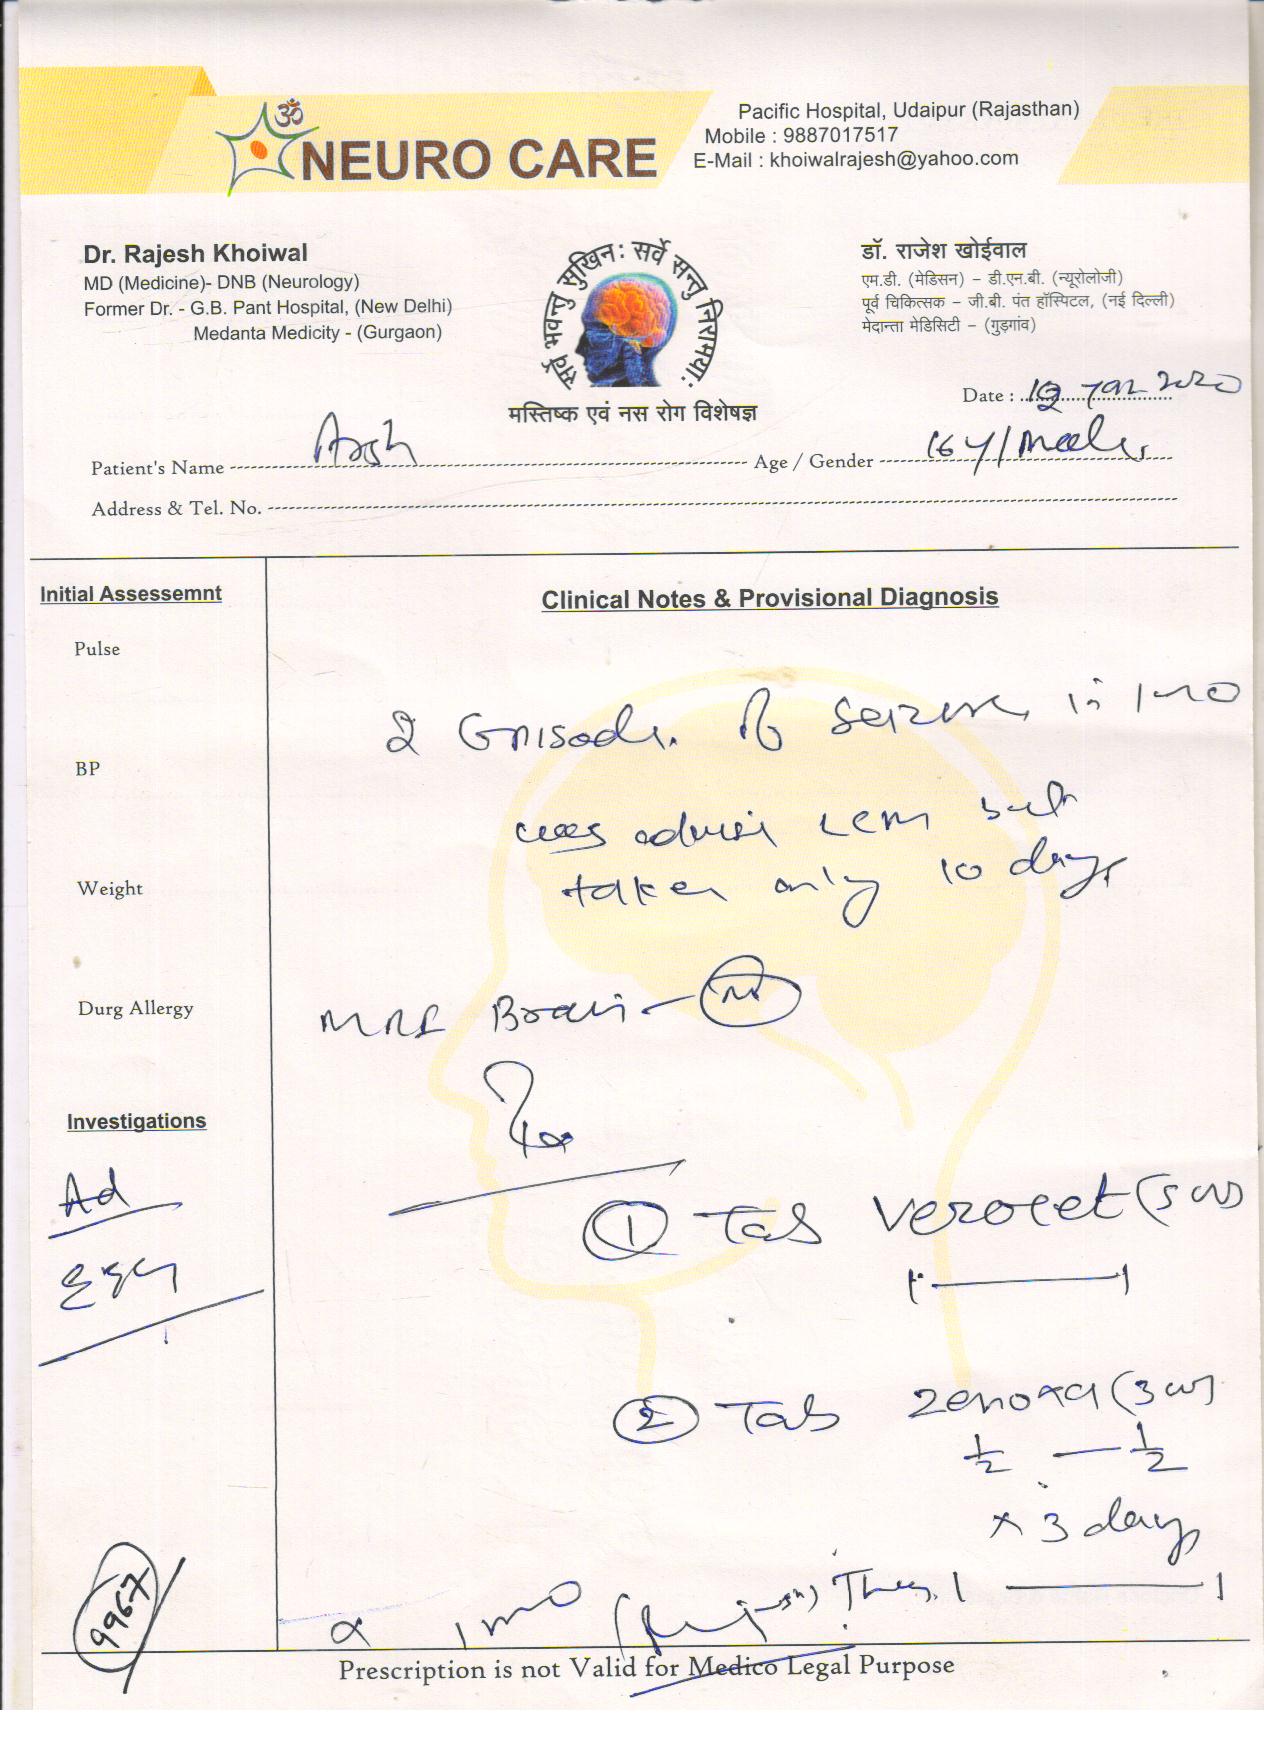 ॐ
NEURO CARE
Pacific Hospital, Udaipur (Rajasthan)
Mobile : 9887017517
E-Mail : khoiwalrajesh@yahoo.com
Dr. Rajesh Khoiwal
MD (Medicine)- DNB (Neurology)
Former Dr. - G.B. Pant Hospital, (New Delhi)
Medanta Medicity - (Gurgaon)
सर्वे भवन्तु सुखिन: सर्वे सन्तु निरामया:
मस्तिष्क एवं नस रोग विशेषज्ञ
डॉ. राजेश खोईवाल
एम.डी. (मेडिसन) – डी.एन.बी. (न्यूरोलोजी)
पूर्व चिकित्सक – जी.बी. पंत हॉस्पिटल, (नई दिल्ली)
मेदान्ता मेडिसिटी – (गुड़गांव)
Date : Jan 2020
Patient's Name Arsh Age / Gender 16 y/Male
Address & Tel. No.
Initial Assessemnt
Clinical Notes & Provisional Diagnosis
Pulse
2 Episode of seizure in 1 mo
BP
was advise LEM but
Weight
taken only 10 days
Durg Allergy
MRI Brain -
Investigations
Ad
① Tab (500)
1 — 1
② Tab (300)
½ — ½
x 3 days
9967
x 1 mo Then 1 — 1
Prescription is not Valid for Medico Legal Purpose